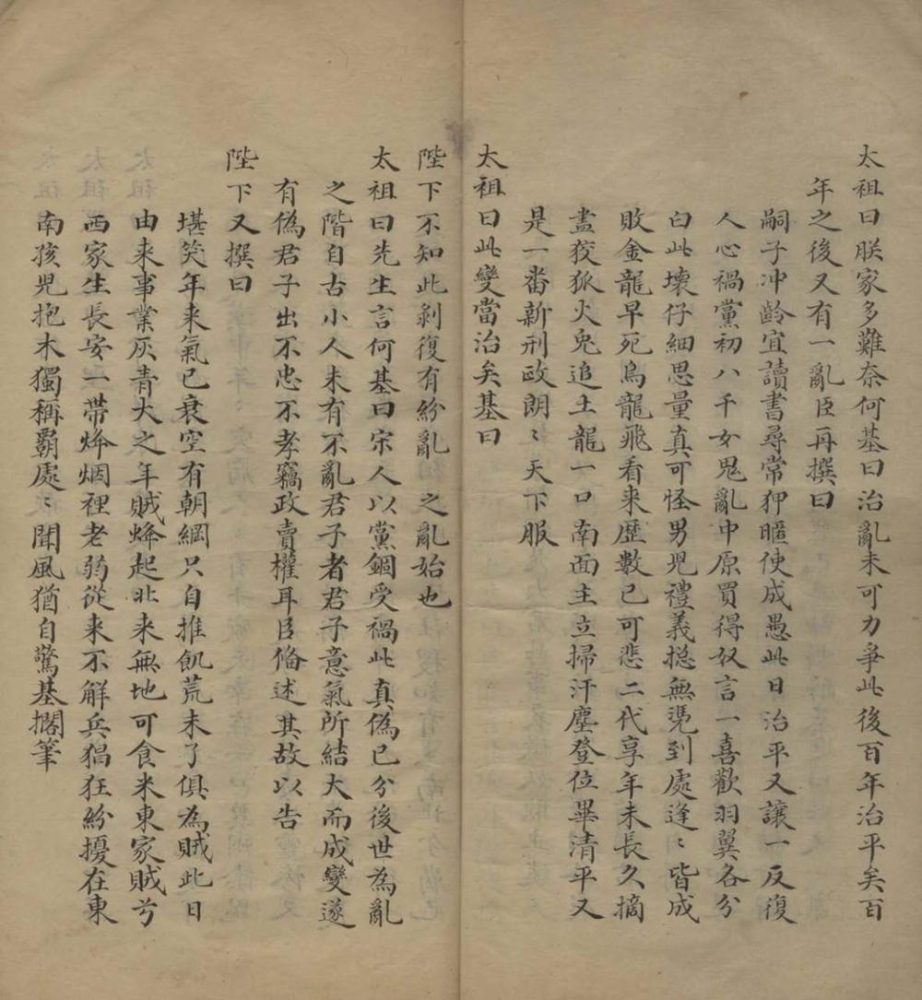 太祖曰朕家多難奈何基曰治亂未可力爭此後百年治平矣百
年之後又有一亂臣再撰曰
嗣子冲齡宜讀書尋常狎暱使成愚此日治平又讓一反復
人心禍黨初八千女鬼亂中原買得奴言一喜歡羽翼各分
白此壞仔細思量真可怪男兒禮義捴無凴到處逢〻皆成
敗金龍早死鳥龍飛看来歷數已可悲二代享年未長久摘
盡狡狐火兔追土龍一口南面主立掃汗塵登位畢清平又
是一番新刑政朗〻天下服
太祖曰此變當治矣基曰
陛下不知此剥復有紛亂之亂始也
太祖曰先生言何基曰宋人以黨錮受禍此真偽已分後世為亂
之階自古小人未有不亂君子者君子意氣所結大而成變遂
有偽君子出不忠不孝竊政賣權耳臣俻述其故以告
陛下又撰曰
堪笑年来氣已衰空有朝綱只自推飢荒未了俱為賊此日
由来事業灰青犬之年賊蜂起北来無地可食米東家賊兮
西家生長安一帶烽烟裡老弱從来不解兵猖狂紛擾在東
南孩兒抱木獨稱霸處〻聞風猶自驚基擱筆